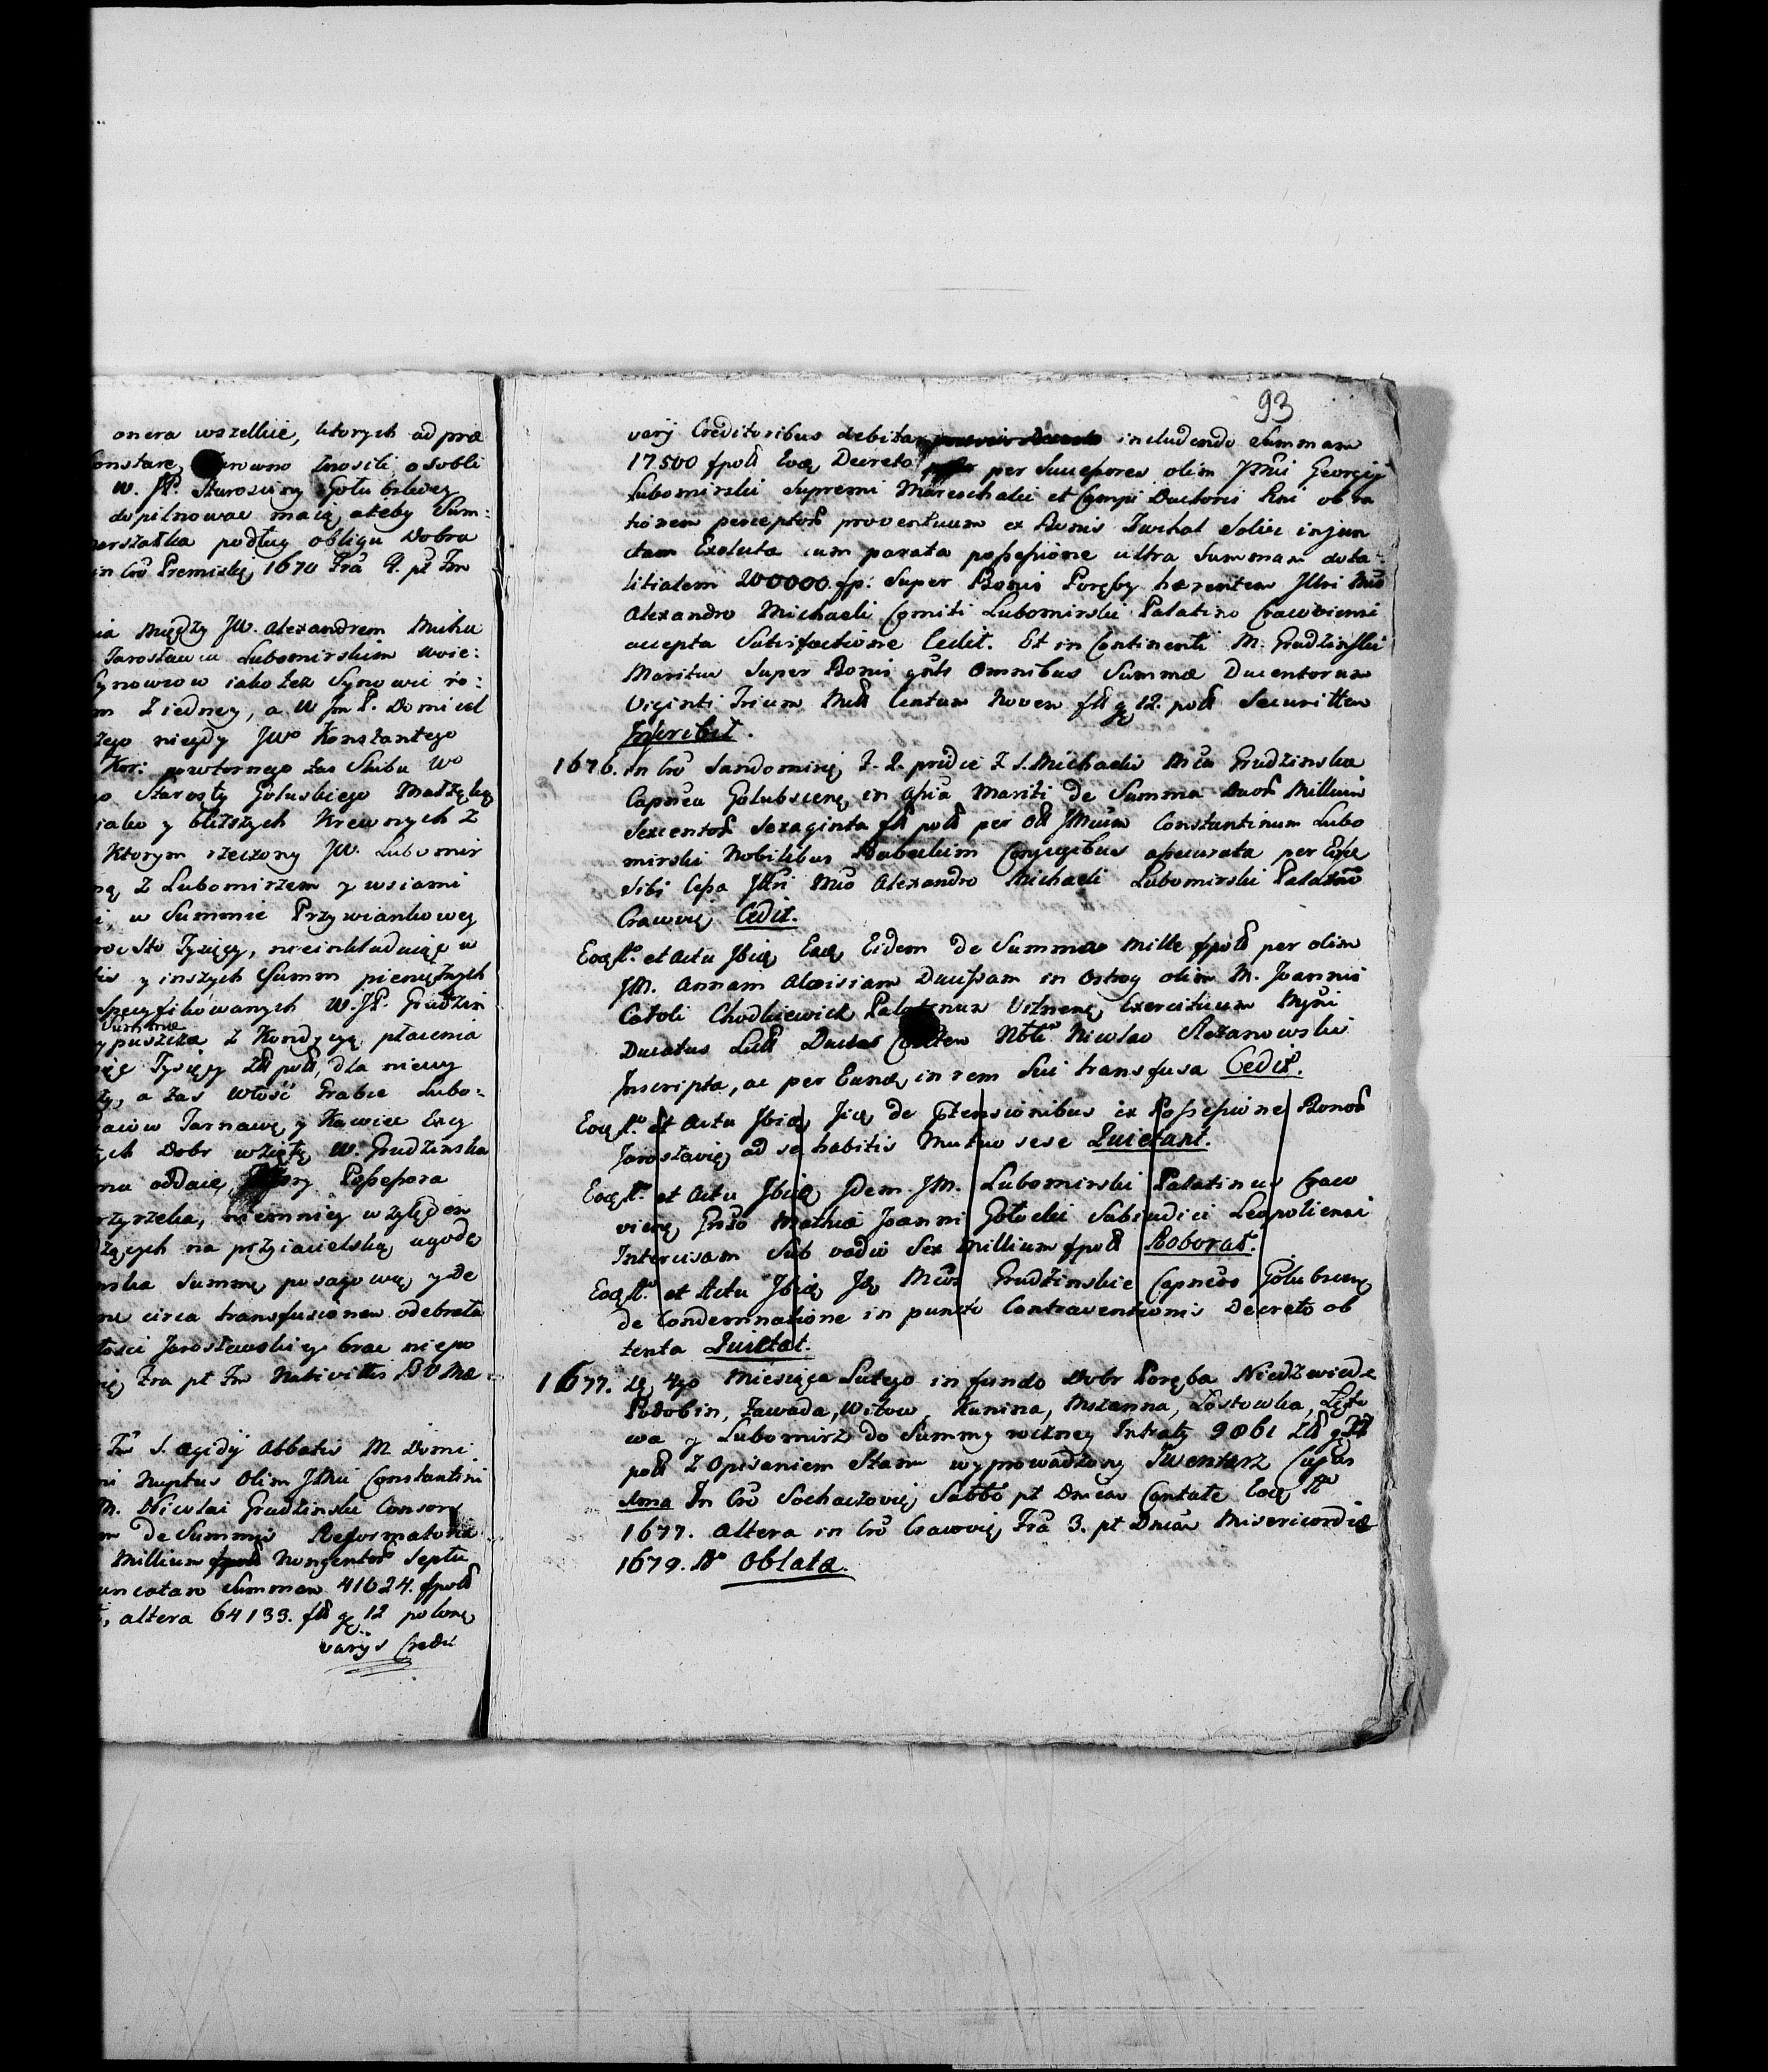 onera wszelkie, ktorych ad præ
Constare, rowno znosili, osobli
W. JP. Starosciny Golubskiey
dopilnować maią, ażeby Sum:
marszałka podług obligu Dobra
in Cró Premislię 1670 Fra 4. pt Fm
ia między JW. Alexandrem Micha
Jarosławiu Lubomirskim Woie:
Synowcow iako też Synowic ro:
m z iedney, a W Jm P. Dominik
tego niegdy JWo Konstantego
Kor: powtornego zas Slubu Wo
o Starosty Goluskiego Małżęką
iako y bliższych Krewnych z
Ktorym rzeczony JW. Lubomir
ną z Lubomirzem y wsiami
i, w Summie Przywiankowey
Sto Tysięcy, nieinkluduiąc w
y inszych Summ pienężnych
Specyfikowanych W. JP. Grudzin
Summę
ypuszcza z Kondycyą płacenia
ięc Tysięcy Złł poll, dla niewy
ty, a zas włość Grabie Lubo:
Tarnawę y Kawiec Exey
tych Dobr wziętę W. Grudzinska
na oddaie Possessora
rzyrzeka, niemniey wzylęden
zących na przyiacielską ugodę
nska Summę posagową y De
ne circa transfusionem odebrała
łości Jarosławskiey brac niepo
ię Fra pt Fm Nativittis BVMæ
Fm S. Ægidy Abbatis M. Domi
Nuptus Olim JMni Constantini
M. Nicolai Grudzinski Consors
m de Summis Reformatoria
Millium fpoll Nongentor Septu
uncatam Summam 41624. fpoll
altera 64133. fll gę 12 polonę
varys Credi
93
varij Creditoribus debitas includendo Summam
17.500 fpoll Eoę Decreto per Successores olim JMni Georgij
Lubomirski Supremi Mareschalci et Campi Ductoris Rni ob ra
tionem perceptor proventuum ex Bonis Zwchal Solvi injun
ctam Exoluta cum parata possessione ultra Summam dota:
litialem 200000 fp: Super Bonis Poręby hærentem Jllri Mco
Alexandro Michaeli Comiti Lubomirski Palatino Cracoviensi
accepta Satisfactione Cedit. Et in Continenti M. Grudzinski
Maritus Super Bonis gnts omnibus Summæ Ducentorum
Viginti Trium Mill Centum Novem fll gę 12. poll Securittem
Inscribit.
1676. in Cró Sandomirię F. 2. pridie F S. Michaelis Mca Grudzinska
Capnea Golubscenę in Assia Mariti de Summa Duor Millium
Sexcentor Sexaginta fll poll per Oll JMcum Constantinum Lubo
mirski Nobilibus Babeckim Conjugibus assecurata per Eosę
Sibi Cessa Jllri Mco Alexandro Michaeli Lubomirski Palatino
Cracovię Cedit.
Eoę Ao. et Actu Jbię Eaę Eidem de Summa Mille fpoll per olim
JM. Annam Aloisiam Ducissam in Ostrog olim M. Joannis
Caroli Chodkiewicz Palatinum Vilnenę Exercituum Mgni
Ducatus Litt Nbli Nicolao Slezanowski
Inscripta, ac per Eundę in rem Sui transfusa Cedit.
Eoę Ao. et Actu Jbię Jię de Ptensionibus ex Possessione Bonor
Jaroslavię ad se habitis Mutuo sese Quietant.
Eoę Ao. et Actu Jbię Jdem JM. Lubomirski Palatinus Craco
vienę Gnso Mathiæ Joanni Gołocki Subiudici Leopoliensi
Intercisam Sub vadio Sex Millium fpoll Roborat.
Eoę Ao. et Actu Jbię Ję Mcos Grudzinskie Capneos Golubscenę
de Condemnatione in puncto Contraventionis Decreto ob
tenta Quietat.
1677. Dę 4go Miesiąca Lutego in fundo Dobr Poręba Niedzwiedz
Podobin, Zawada, Witow, Kunina, Mszanna, Lostowka, Lęto
wa y Lubomirz do Summy roczney Intraty 9861 Złł g
poll z Opisaniem Stanu wyprowadzony Inwentarz Cujus
ima In Cró Sochaczovię Sabbo pt Dnicam Cantate Eoę Ao
1677. altera in Cró Cracovię Fra 3. pt Dnicam Misericordiæ
1679. Ao Oblata.